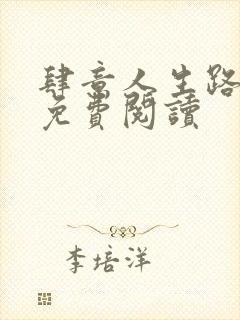 肆意人生路
免費閱讀
李培洋